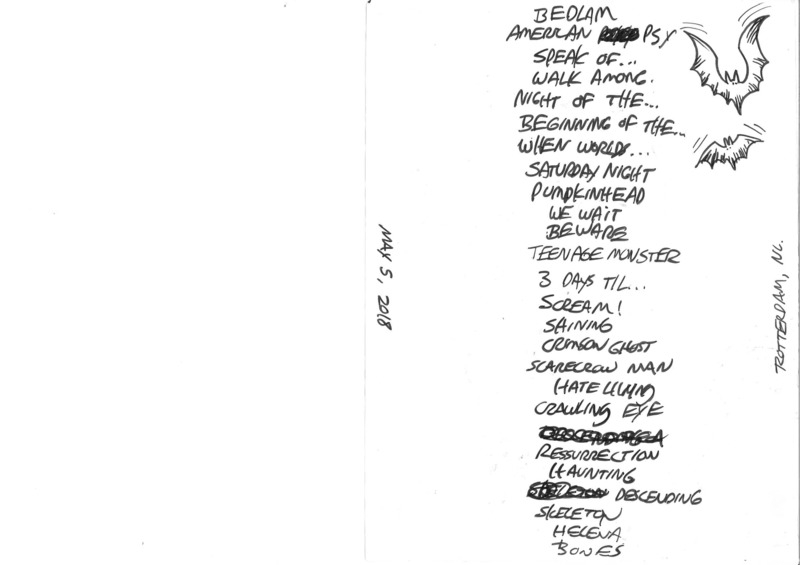 BEDLAM
AMERICAN PSY
SPEAK OF...
WALK AMONG.
NIGHT OF THE...
BEGINNING OF THE...
WHEN WORLDS...
SATURDAY NIGHT
PUMPKINHEAD
WE WAIT
BEWARE
TEENAGE MONSTER
3 DAYS TIL...
SCREAM!
SHINING
CRIMSON GHOST
SCARECROW MAN
HATE LIVING
CRAWLING EYE
RESSURRECTION
HAUNTING
DESCENDING
SKELETON
HELENA
BONES
MAY 5, 2018
ROTTERDAM, NL.